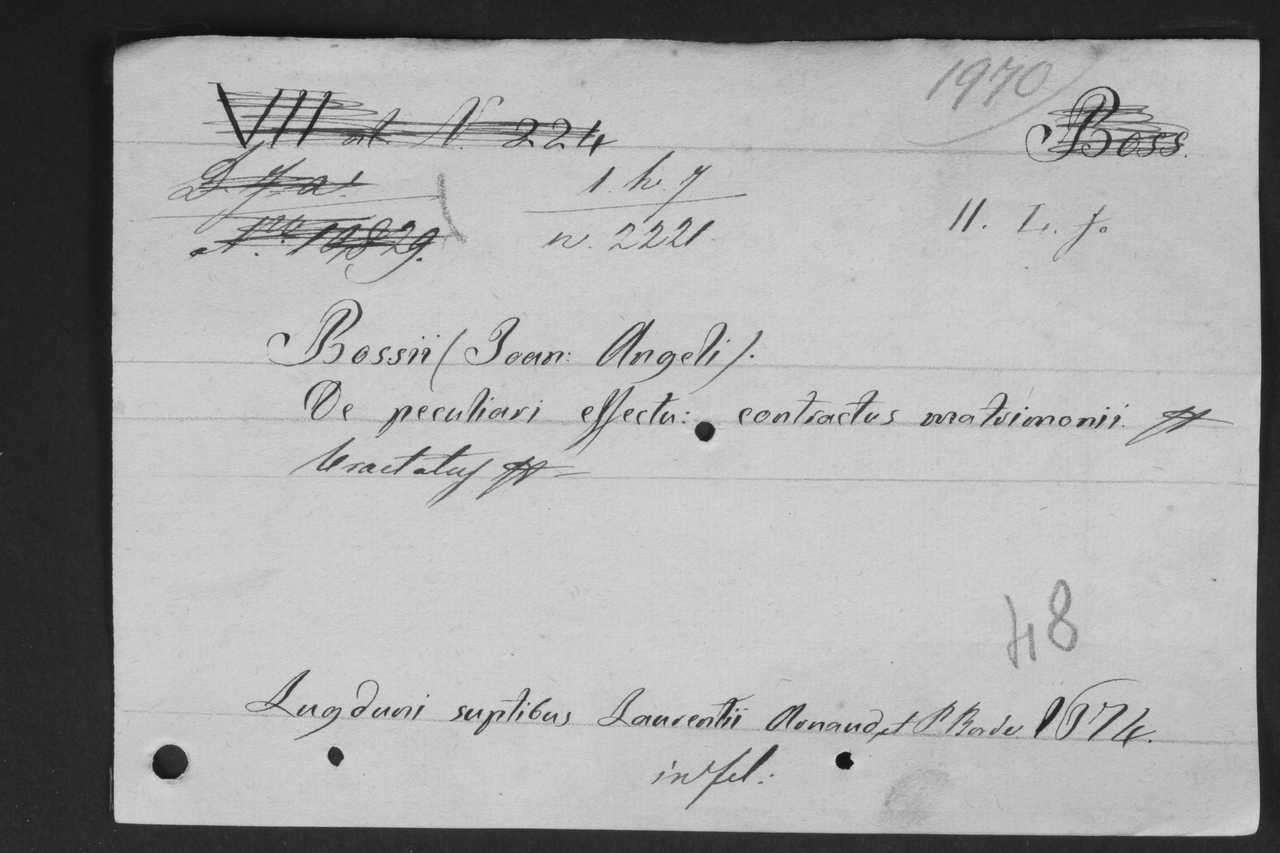 1970
VII at N. 224
Boss.
1. h. 7
II. L. f.
No. 10829.
n. 2221
Bossii (Joan: Angeli).
De peculiari effectu: contractus matrimonii
tractatus
48
Lugduni suptibus Laurentii Arnaud, et P. Borde 1674.
in fol: